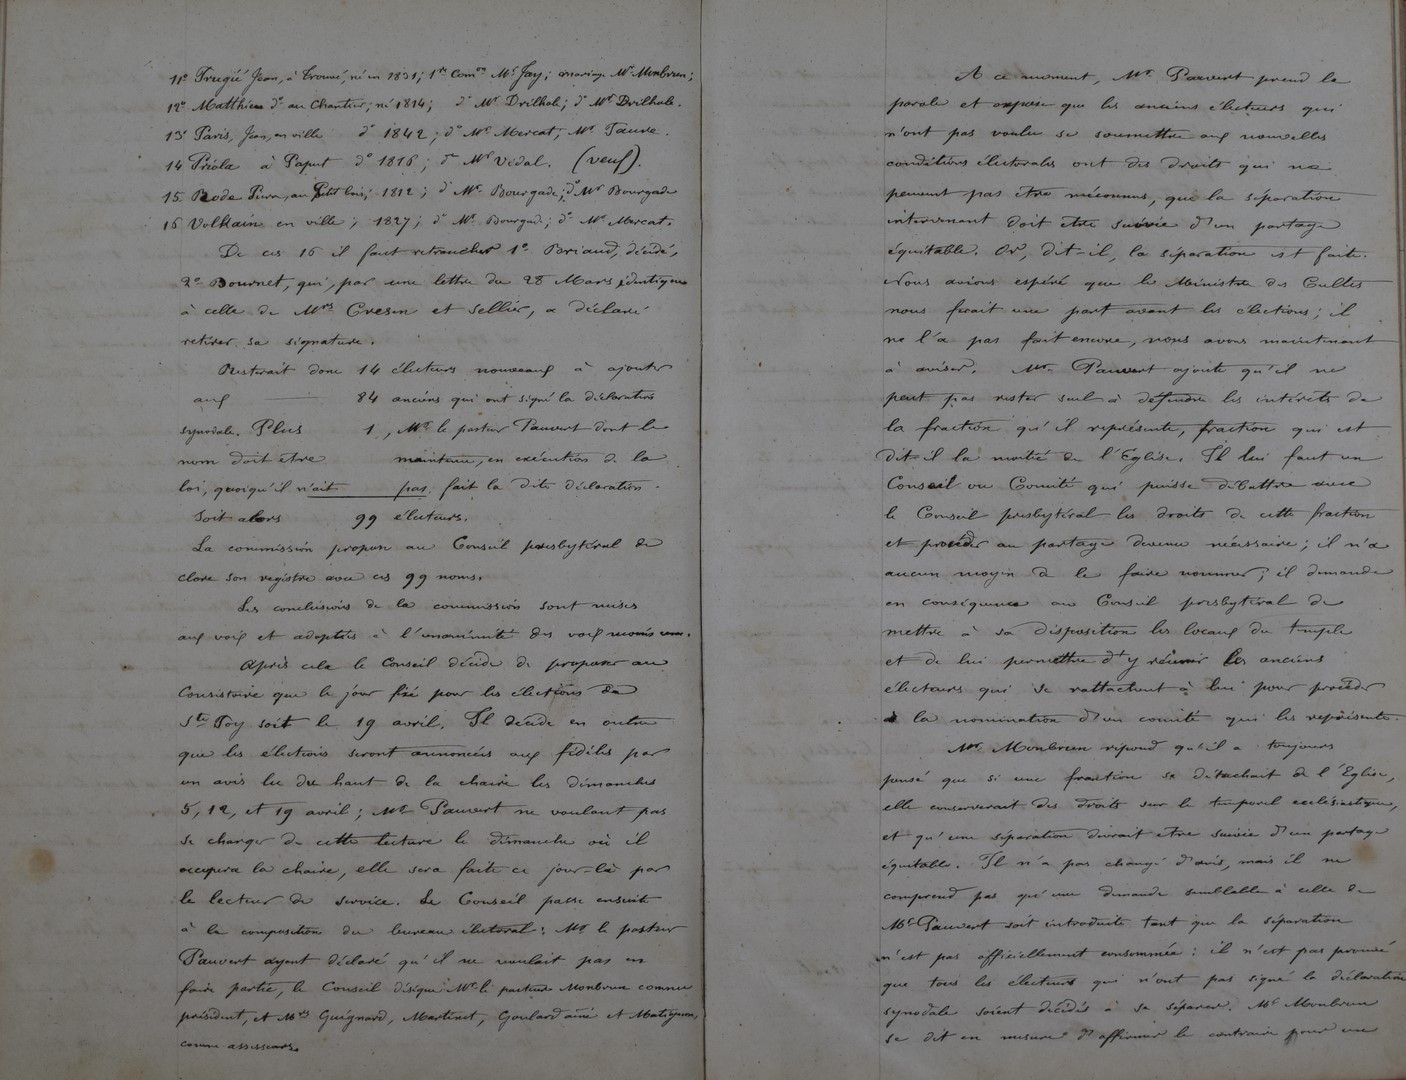 11º Trugié Jean, à Crouvé, né en 1831; 1re Comon Mr Jay; mariage Mr Monbrun;
12º Matthieu do au Chanteur; né 1814; do Mr Drilhole; do Mr Drilhole.
13º Paris, Jean, en ville do 1842; do Mr Mercat, Mr Faure.
14 Priola à Paput do 1816; do Mr Vidal. (veuf).
15. Rode Pierre, au Petit bois; 1812; do Mr Bourgade; do Mr Bourgade
16 Volkain en ville; 1827; do Mr Bourgade; do Mr Mercat.
De ces 16 il faut retrancher 1º Briaud, décidé,
2º Bournet, qui, par une lettre du 28 Mars identique
à celle de Mrs Cresen et Sellier, a déclaré
retirer sa signature.
Resterait donc 14 électeurs nouveaux à ajouter
aux 84 anciens qui ont signé la déclaration
synodale. Plus 1, Mr le pasteur Pauvert dont le
nom doit etre maintenu, en exécution de la
loi, quoiqu'il n'ait pas fait la dite déclaration.
Soit alors 99 électeurs.
La commission propose au Conseil presbytéral de
clore son registre avec ces 99 noms.
Les conclusions de la commission sont mises
aux voix et adoptés à l'unanimité des voix moins une.
Après cela le Conseil décide de proposer au
Consistoire que le jour fixé pour les élections de
Ste Foy soit le 19 avril. Il décide en outre
que les élections seront annoncées aux fidèles par
un avis lu du haut de la chaire les dimanches
5, 12, et 19 avril; Mr Pauvert ne voulant pas
se charger de cette lecture le dimanche où il
occupera la chaire, elle sera faite ce jour-là par
le lecteur de service. Le Conseil passe ensuite
à la composition du bureau électoral: Mr le pasteur
Pauvert ayant déclaré qu'il ne voulait pas en
faire partie, le Conseil désigne Mr le pasteur Monbrun comme
président, et Mrs Guignard, Martinet, Goulard ainé et Matignon,
comme assesseurs.
A ce moment, Mr Pauvert prend la
parole et expose que les anciens électeurs qui
n'ont pas voulu se soumettre aux nouvelles
conditions électorales ont des droits qui ne
peuvent pas être méconnus, que la séparation
intervenant doit etre suivie d'un partage
équitable. Or, dit-il, la séparation est faite.
Nous avions espéré que le Ministre des Cultes
nous ferait une part avant les élections; il
ne l'a pas fait encore, nous avons maintenant
à aviser. Mr Pauvert ajoute qu'il ne
peut pas rester seul à défendre les intérets de
la fraction qu'il représente, fraction qui est
dit-il la moitié de l'Eglise. Il lui faut un
Conseil ou Comité qui puisse débattre avec
le Conseil presbytéral les droits de cette fraction
et procéder au partage devenu nécessaire; il n'a
aucun moyen de le faire nommer; il demande
en conséquence au Conseil presbytéral de
mettre à sa disposition les locaux du temple
et de lui permettre d'y réunir les anciens
électeurs qui se rattachent à lui pour procéder
à la nomination d'un comité qui les représente.
Mr Monbrun répond qu'il a toujours
pensé que si une fraction se détachait de l'Eglise,
elle conserverait des droits sur le temporel ecclésiastique,
et qu'une séparation devrait etre suivie d'un partage
équitable. Il n'a pas changé d'avis, mais il ne
comprend pas qu'une demande semblable à celle de
Mr Pauvert soit introduite tant que la séparation
n'est pas officiellement consommée: il n'est pas prouvé
que tous les électeurs qui n'ont pas signé la déclaration
synodale soient décidés à se séparer. Mr Monbrun
se dit en mesure d'affirmer le contraire pour un